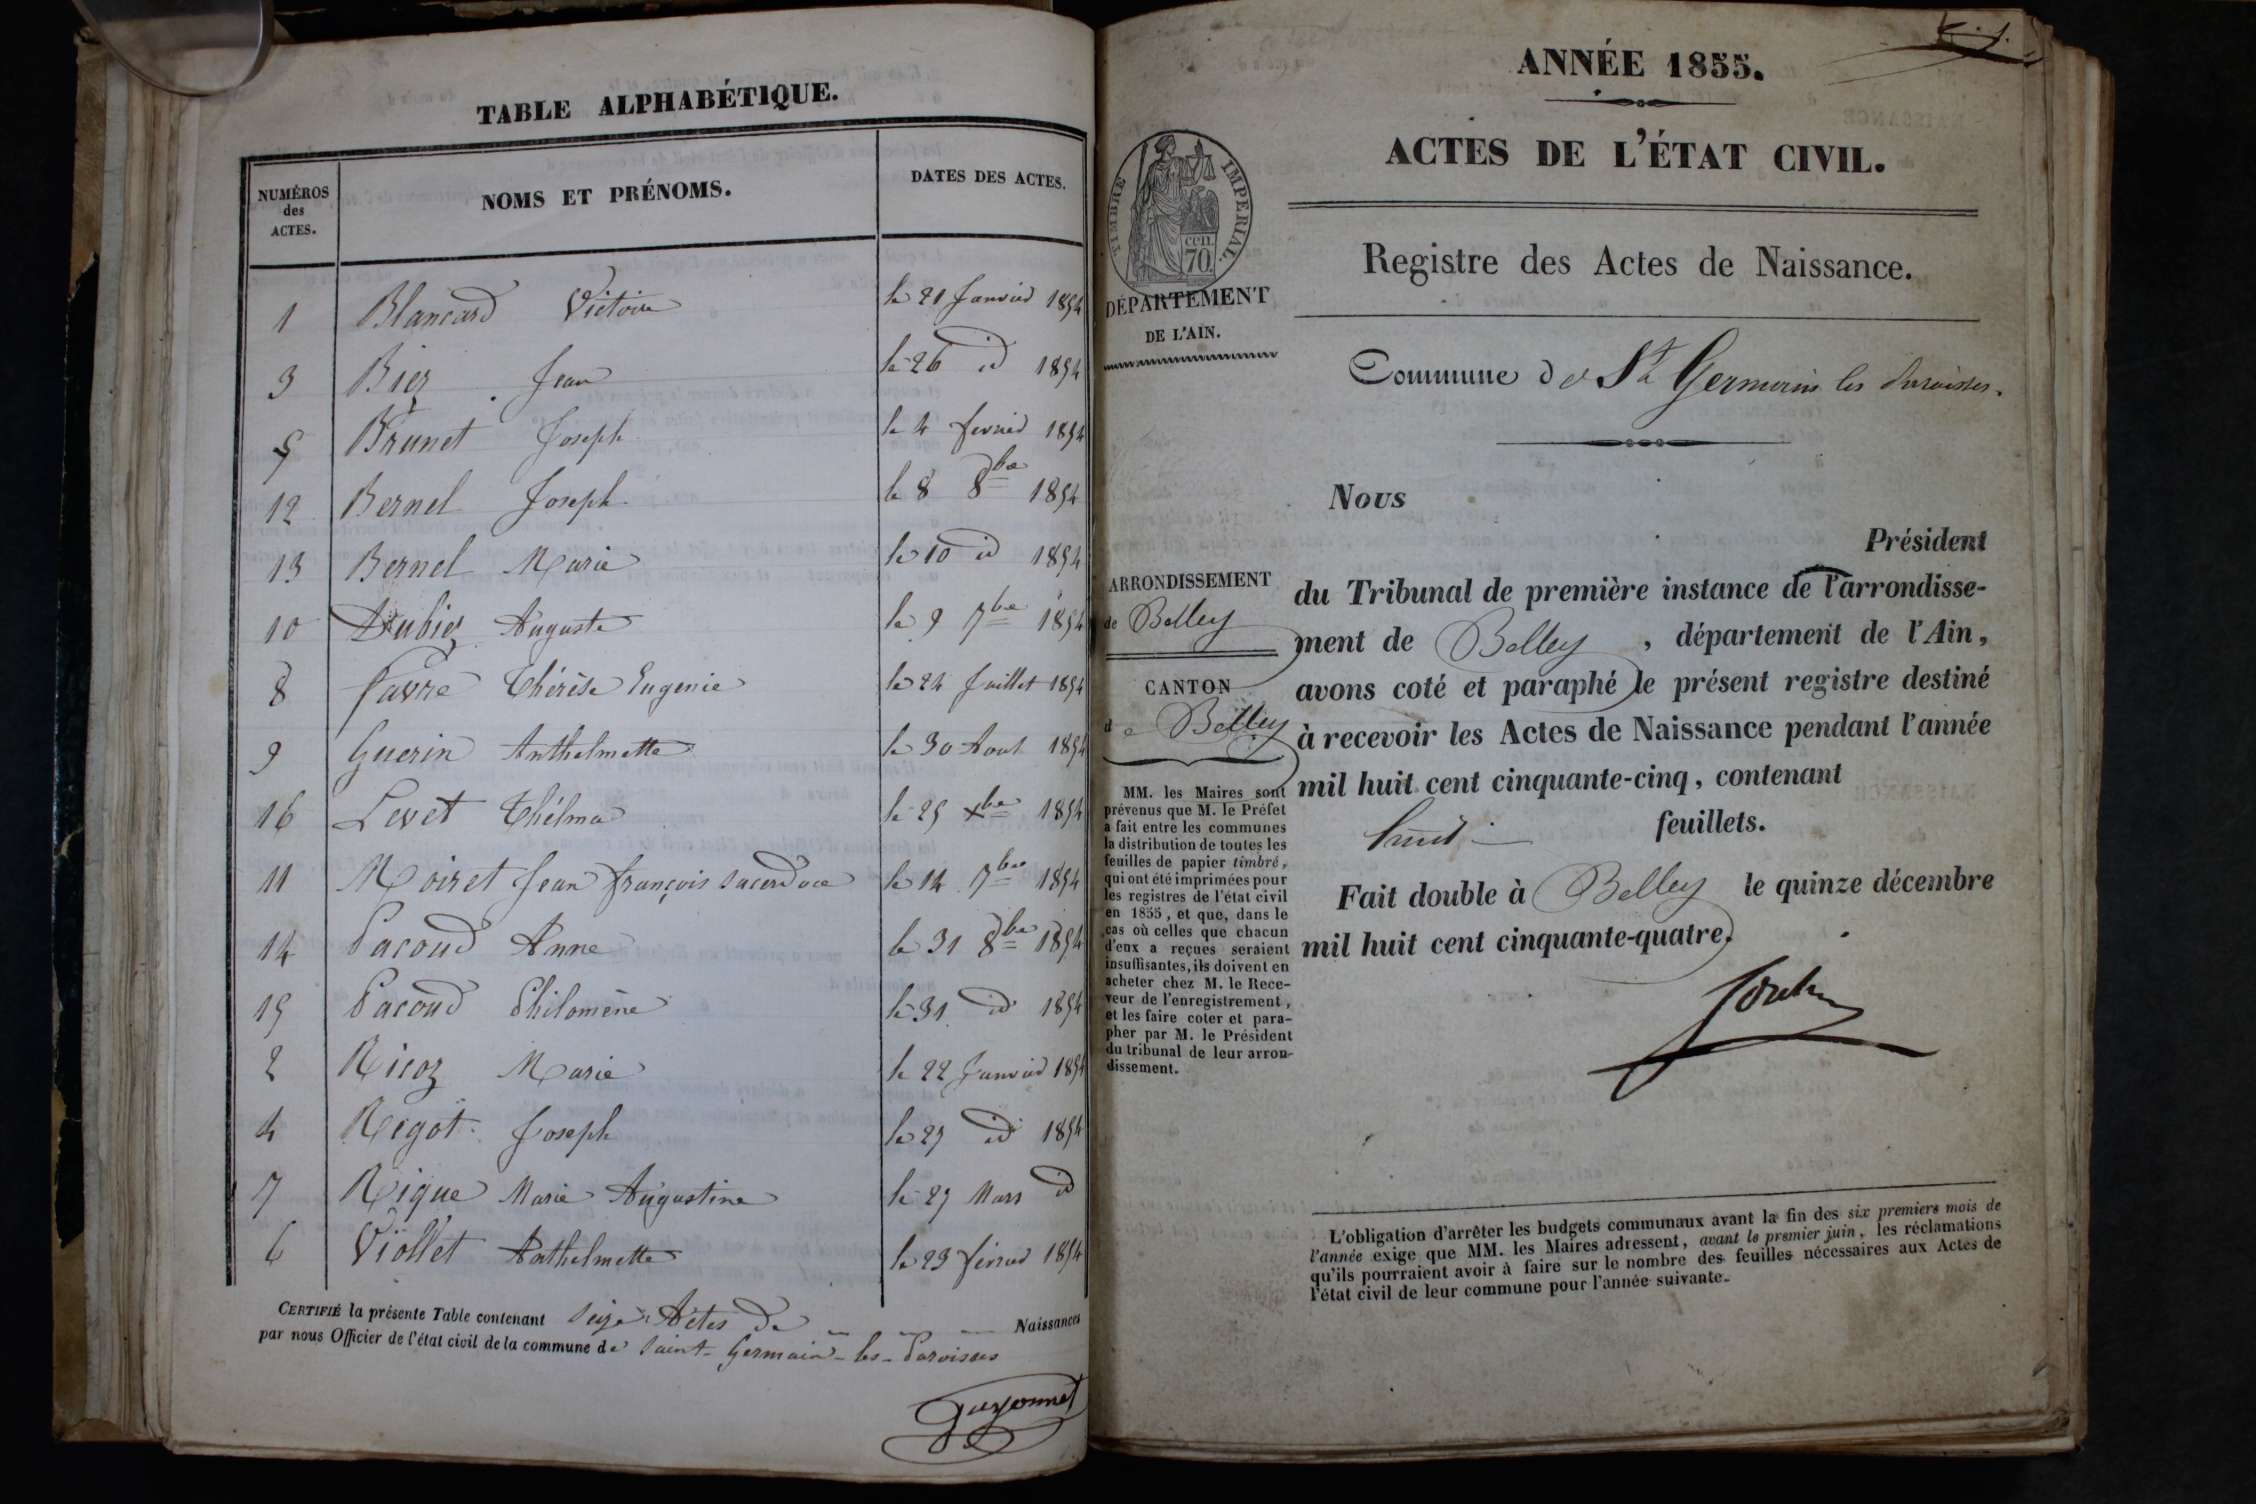 TABLE ALPHABÉTIQUE.
NUMÉROS des ACTES. NOMS ET PRÉNOMS. DATES DES ACTES.
1 Blancard Victoire le 21 Janvier 1854
3 Biez Jean le 26 id 1854
5 Brunet Joseph le 4 fevrier 1854
12 Bernel Joseph le 8 8bre 1854
13 Bernel Marie le 10 id 1854
10 Dubiez Auguste le 9 7bre 1854
8 Favre Thérèse Eugenie le 24 Juillet 1854
9 Guerin Anthelmette le 30 Aout 1854
16 Levet Thélma le 25 xbre 1854
11 Moiret Jean françois le 14 7bre 1854
14 Pacoud Anne le 31 8bre 1854
15 Pacoud Philomène le 31 id 1854
2 Ricoz Marie le 22 Janvier 1854
4 Rigot Joseph le 29 id 1854
7 Rique Marie Augustine le 29 Mars id
6 Viollet Anthelmette le 23 févrer 1854
CERTIFIÉ la présente Table contenant Seize Actes de Naissances
par nous Officier de l'état civil de la commune de Saint-Germain-les-Paroisses
Guyonnet
ANNÉE 1855.
ACTES DE L'ÉTAT CIVIL.
TIMBRE IMPERIAL.
70 cen.
DÉPARTEMENT
DE L'AIN.
Registre des Actes de Naissance.
Commune de St Germain les Paroisses.
Nous
Président
du Tribunal de première instance de l'arrondisse-
ment de Belley, département de l'Ain,
avons coté et paraphé le présent registre destiné
à recevoir les Actes de Naissance pendant l'année
mil huit cent cinquante-cinq, contenant
huit feuillets.
Fait double à Belley le quinze décembre
mil huit cent cinquante-quatre.
ARRONDISSEMENT
de Belley
CANTON
de Belley
MM. les Maires sont
prévenus que M. le Préfet
a fait entre les communes
la distribution de toutes les
feuilles de papier timbré,
qui ont été imprimées pour
les registres de l'état civil
en 1855, et que, dans le
cas où celles que chacun
d'eux a reçues seraient
insuffisantes, ils doivent en
acheter chez M. le Rece-
veur de l'enregistrement,
et les faire coter et para-
pher par M. le Président
du tribunal de leur arron-
dissement.
L'obligation d'arrêter les budgets communaux avant la fin des six premiers mois de
l'année exige que MM. les Maires adressent, avant le premier juin, les réclamations
qu'ils pourraient avoir à faire sur le nombre des feuilles nécessaires aux Actes de
l'état civil de leur commune pour l'année suivante.